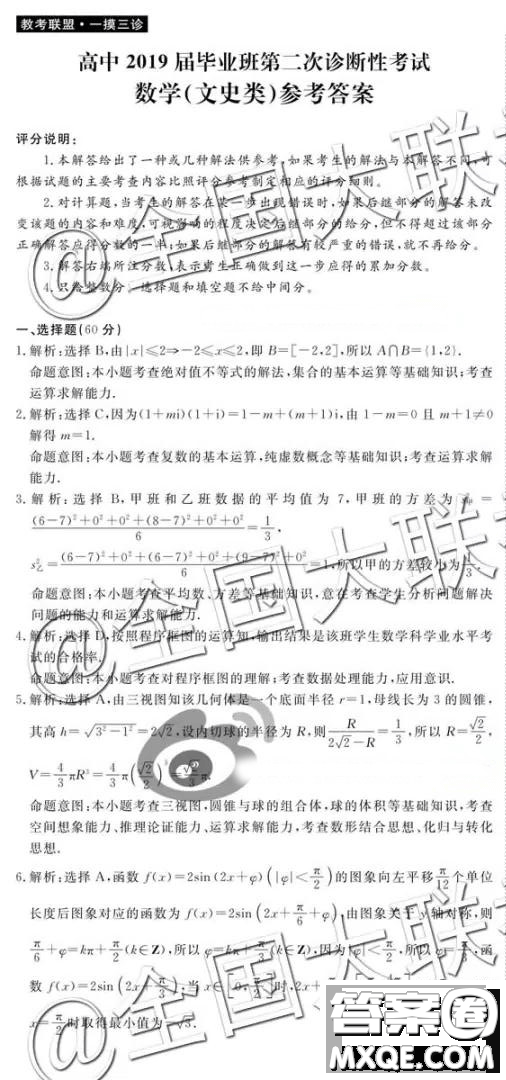 教考联盟·一摸三诊
高中 2019 届毕业班第二次诊断性考试
数学(文史类)参考答案
评分说明:
1.本解答给出了一种或几种解法供参考,如果考生的解法与本解答不同,可
根据试题的主要考查内容比照评分参考制定相应的评分细则。
2.对计算题,当考生的解答在某一步出现错误时,如果后继部分的解答未改
变该题的内容和难度,可视影响的程度决定后继部分的给分,但不得超过该部分
正确解答应得分数的一半;如果后继部分的解答有较严重的错误,就不再给分。
3.解答右端所注分数,表示考生正确做到这一步应得的累加分数。
4.只给整数分。选择题和填空题不给中间分。
一、选择题(60 分)
1.解析:选择 B,由|x|≤2⇒-2≤x≤2,即 B=[-2,2],所以 A∩B={1,2}.
命题意图:本小题考查绝对值不等式的解法,集合的基本运算等基础知识;考查
运算求解能力.
2.解析:选择 C,因为(1+mi)(1+i)=1-m+(m+1)i,由 1-m=0 且 m+1≠0
解得 m=1.
命题意图:本小题考查复数的基本运算,纯虚数概念等基础知识;考查运算求解
能力.
3.解析:选择 B,甲班和乙班数据的平均值为 7,甲班的方差为 s²甲=
(6-7)²+0²+0²+(8-7)²+0²+0²/6=1/3,
s²乙=(6-7)²+0²+(6-7)²+(6-7)²+(9-7)²+0²/6=1,所以甲的方差较小为1/3.
命题意图:本小题考查平均数、方差等基础知识,意在考查学生分析问题解决
问题的能力和运算求解能力.
4.解析:选择 D,按照程序框图的运算知,输出结果是该班学生数学科学业水平考
试的合格率.
命题意图:本小题考查对程序框图的理解;考查数据处理能力,应用意识.
5.解析:选择 A,由三视图知该几何体是一个底面半径 r=1,母线长为 3 的圆锥,
其高 h=√3²-1²=2√2,设内切球的半径为 R,则R/2√2-R=1/3,所以 R=√2/2,
V=4/3πR³=4/3π(√2/2)³=√2/3π.
命题意图:本小题考查三视图,圆锥与球的组合体,球的体积等基础知识,考查
空间想象能力、推理论证能力、运算求解能力,考查数形结合思想、化归与转化
思想.
6.解析:选择 A,函数 f(x)=2sin(2x+φ)(|φ|<π/2)的图象向左平移π/12个单位
长度后图象对应的函数为 f(x)=2sin(2x+π/6+φ),由图象关于 y 轴对称,则
π/6+φ=kπ+π/2(k∈Z),所以 φ=kπ+π/3(k∈Z),因为|φ|<π/2,所以 φ=π/3,函
数 f(x)=2sin(2x+π/3),当 x∈[0,π/2]时,2x+
x=π/2时取得最小值为-√3.
@全国大联
@全国大联
@全国大联
答案圈
MXQE.COM